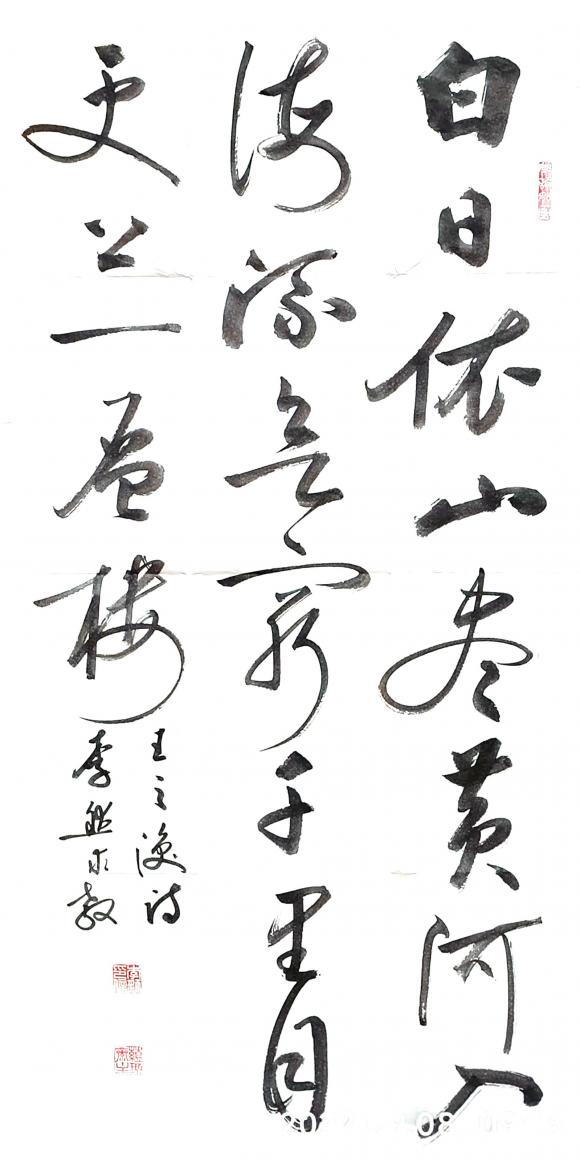 白日依山尽黄河入
海流欲穷千里目
更上一层楼
王之涣诗
李求教